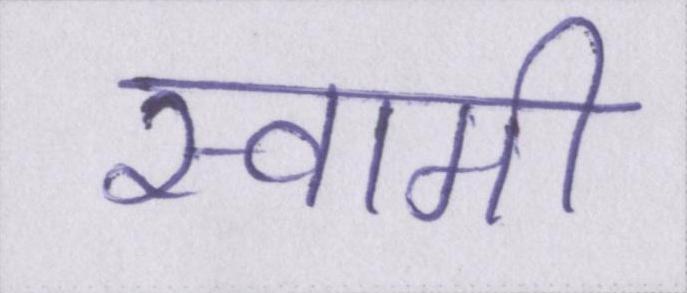 स्वामी